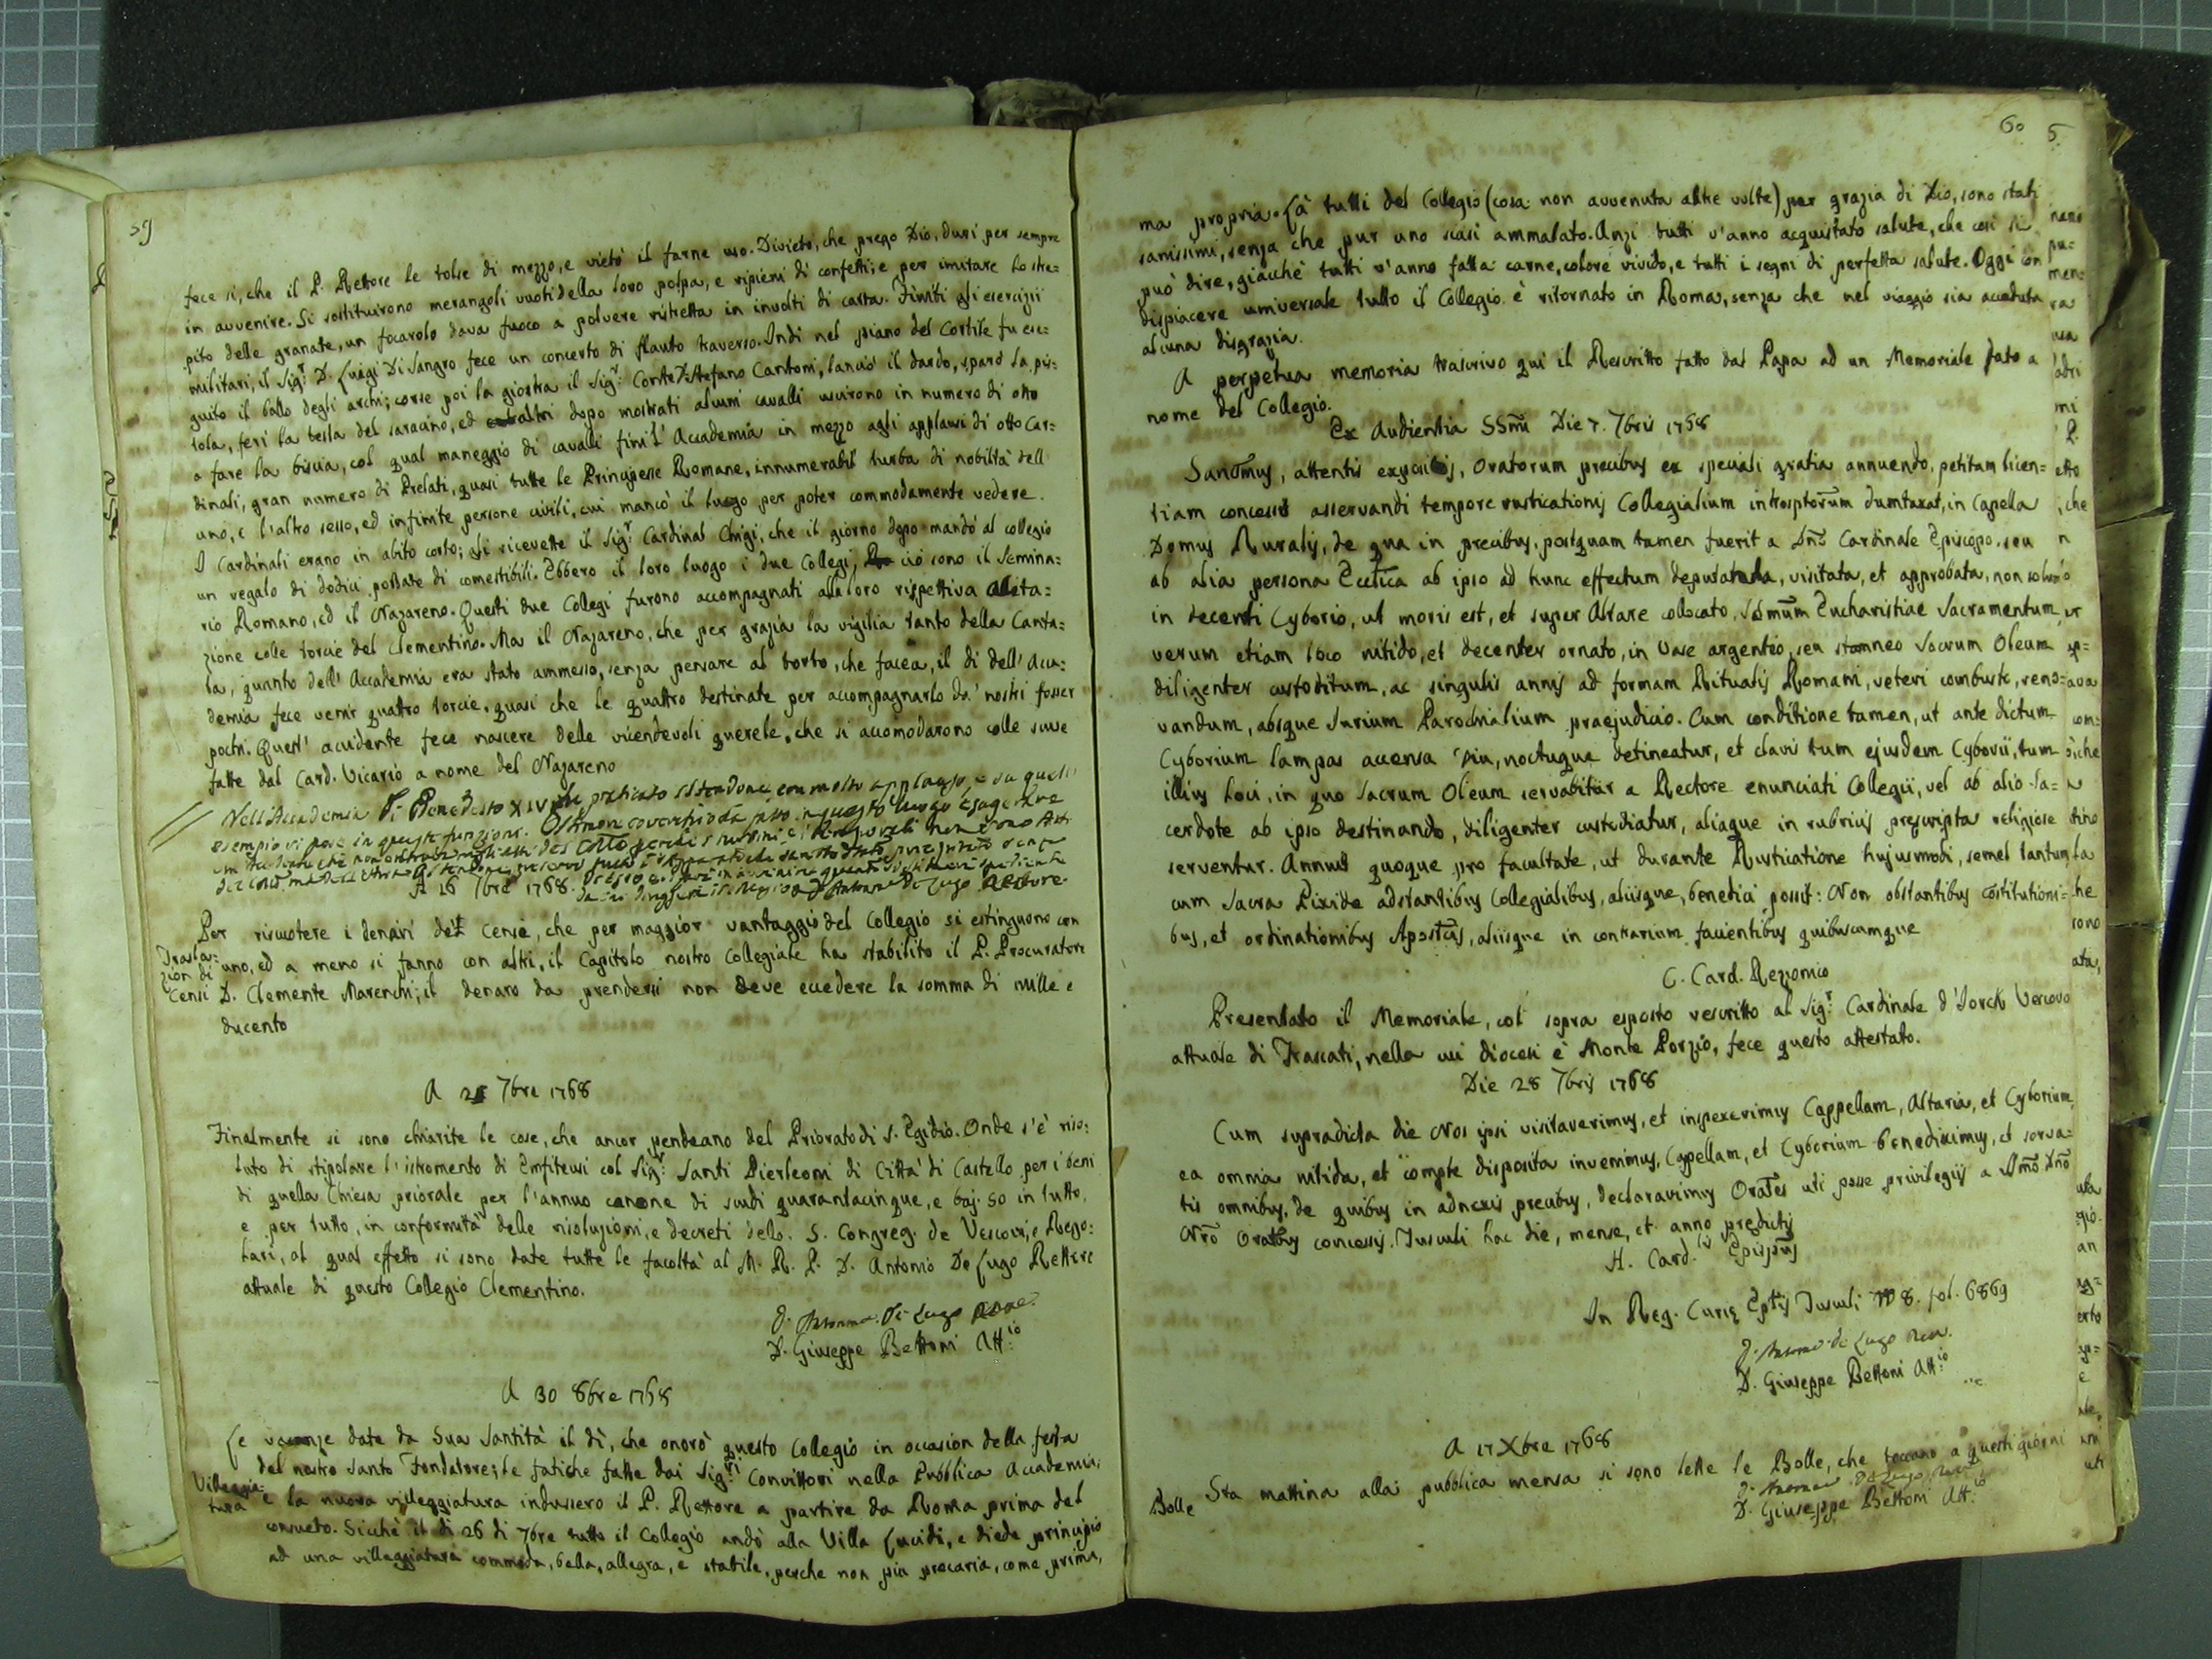 59
fece si, che il P. Rettore le tolse di mezzo, e vietò il farne uso. Divieto, che prego Dio, duri per sempre
in avvenire. Si sostituirono merangoli vuoti della loro polpa, e ripieni di confetti; e per imitare lo stre=
pito delle granate, un focarolo dava fuoco a polvere ristretta in involti di carta. Finiti gli esercizii
militari, il Sig.r D. Luigi Di Sangro fece un concerto di flauto traverso. Indi nel piano del Cortile fu ese=
guito il ballo degli archi; corse poi la giostra il Sig.r Conte D. Stefano Cantoni, lanciò il dardo, sparò la pis=
tola, ferì la testa del saracino, ed altri dopo mostrati alcuni cavalli uscirono in numero di otto
a fare la biscia, col qual maneggio di cavalli finì l' Accademia in mezzo agli applausi di otto Car=
dinali, gran numero di Prelati, quasi tutte le Principesse Romane, innumerabil turba di nobiltà dell
uno, e l'altro sesso, ed infinite persone civili, cui mancò il luogo per poter commodamente vedere.
I Cardinali erano in abito corto; gli ricevette il Sig.r Cardinal Chigi, che il giorno dopo mandò al collegio
un regalo di dodici portate di comestibili. Ebbero il loro luogo i due Collegi, ciò sono il Semina=
rio Romano, ed il Nazareno. Questi due Collegi furono accompagnati alla loro rispettiva abita=
zione colle torcie del Clementino. Ma il Nazareno, che per grazia la vigilia tanto della Canta=
ta, quanto dell' Accademia era stato ammesso, senza pensare al torto, che facea, il dì dell' Acca=
demia fece venir quattro torcie, quasi che le quattro destinate per accompagnarlo da' nostri fosser
pochi. Quest' accidente fece nascere delle vicendevoli querele, che si accomodarono colle scuse
fatte dal Card. Vicario a nome del Nazareno
Nell'Accademia di Benedetto XIV
A 26 7bre 1768. D. Antonio Di Lugo Rettore.
Per riscuotere i denari de' Censi, che per maggior vantaggio del Collegio si estinguono con
Trasla=
zion di
Censi
uno, ed a meno si fanno con altri, il Capitolo nostro Collegiale ha stabilito il P. Procuratore
D. Clemente Marenchi; il denaro da prendersi non deve eccedere la somma di mille e
ducento
A 28 7bre 1768
Finalmente si sono chiarite le cose, che ancor pendeano del Priorato di S. Egidio. Onde s'è riso=
luto di stipolare l'istromento di Emfiteusi col Sig.r Santi Pierleoni di Città di Castello per i beni
di quella Chiesa priorale per l'annuo canone di scudi quarantacinque, e baj. 50 in tutto,
e per tutto, in conformità delle risoluzioni, e decreti della S. Congreg. de Vescovi, e Rego=
lari, al qual effetto si sono date tutte le facoltà al M. R. P. D. Antonio De Lugo Rettore
attuale di questo Collegio Clementino.
D. Antonio Di Lugo Rettore.
D. Giuseppe Bettoni Att.io
A 30 8bre 1768
Le vacanze date da Sua Santità il dì, che onorò questo Collegio in occasion della festa
del nostro Santo Fondatore; le fatiche fatte dai Sig.ri Convittori nella Pubblica Accademia;
Villeggia=
tura
e la nuova villeggiatura indussero il P. Rettore a partire da Roma prima del
consueto. Sicchè il dì 26 di 7bre tutto il Collegio andò alla Villa Lucidi, e diede principio
ad una villeggiatura commoda, bella, allegra, e stabile, perche non più precaria, come prima,
60 5
ma propria. Là tutti del Collegio (cosa non avvenuta altre volte) per grazia di Dio, sono stati
sanissimi, senza che pur uno siasi ammalato. Anzi tutti v'anno acquistato salute, che così si
può dire, giacchè tutti v'anno fatta carne, colore vivido, e tutti i segni di perfetta salute. Oggi con
dispiacere universale tutto il Collegio è ritornato in Roma, senza che nel viaggio sia accaduta
alcuna disgrazia.
A perpetua memoria trascrivo qui il Rescritto fatto dal Papa ad un Memoriale dato a
nome del Collegio.
Ex Audientia SSmi Die 7. 7bris 1768
Sanctmus, attentis expositis, Oratorum precibus ex speciali gratia annuendo, petitam licen=
tiam concessit asservandi tempore rusticationis Collegialium introsptorum dumtaxat, in Capella
Domus Ruralis, de qua in precibus, postquam tamen fuerit a Dno Cardinale Episcopo, seu
ab alia persona Ecclica ab ipso ad hunc effectum deputanda, visitata, et approbata, non solum
in decenti Cyborio, ut moris est, et super Altare collocato, SSmum Eucharistiae Sacramentum,
verum etiam loco nitido, et decenter ornato, in Vase argenteo, seu stamneo Sacrum Oleum
diligenter custoditum, ac singulis annis ad formam Ritualis Romani, veteri combusto, reno=
vandum, absque Jurium Parochialium praejudicio. Cum conditione tamen, ut ante dictum
Cyborium lampas accensa diu, noctuque detineatur, et clavis tum ejusdem Cyborii, tum
illius Loci, in quo Sacrum Oleum servabitur a Rectore enunciati Collegii, vel ab alio Sa=
cerdote ab ipso destinando, diligenter custodiatur, aliaque in rubricis prescripta religiose
serventur. Annuit quoque pro facultate, ut durante Rusticatione hujusmodi, semel tantum
cum Sacra Pixide adstantibus Collegialibus, aliisque, benedici possit: Non obstantibus Costitutioni=
bus, et ordinationibus Apostcis, aliisque in contrarium facientibus quibuscumque
C. Card. Rezzonico
Presentato il Memoriale, col sopra esposto rescritto al Sig.r Cardinale d'Jorck Vescovo
attuale di Frascati, nella cui diocesi è Monte Porzio, fece questo attestato.
Die 28 7bris 1768
Cum supradicta die Nos ipsi visitaverimus, et inspexerimus Cappellam, Altaria, et Cyborium,
ea omnia nitida, et compte disposita invenimus, Cappellam, et Cyborium benediximus, et serva=
tis omnibus, de quibus in adnexis precibus, declaravimus Orates uti posse privilegiis a SSmo Dno
Nro Oratbus concessis. Tusculi hac die, mense, et anno predictis
H. Card.lis Epispus
In Reg. Curię Eplis Tusculi N 8. fol. 6869
D. Antonio di Lugo Rett.
D. Giuseppe Bettoni Att.io
A 17 Xbre 1768
Bolle
Sta mattina alla pubblica mensa si sono lette le Bolle, che toccano a questi giorni
D. Antonio Di Lugo Rett.
D. Giuseppe Bettoni Att.io